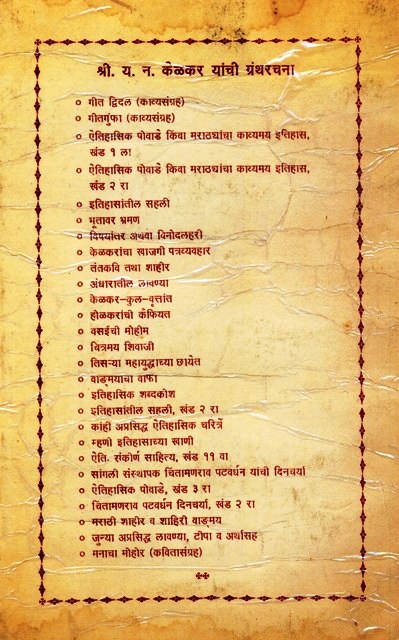 श्री. य. न. केळकर यांची ग्रंथरचना
गीत द्विदल (काव्यसंग्रह)
गीतगुंफा (काव्यसंग्रह)
ऐतिहासिक पोवाडे किंवा मराठ्यांचा काव्यमय इतिहास,
खंड १ ला
ऐतिहासिक पोवाडे किंवा मराठ्यांचा काव्यमय इतिहास,
खंड २ रा
इतिहासांतील सहली
भूतावर भ्रमण
विषयांतर अथवा विनोदलहरी
केळकरांचा खाजगी पत्रव्यवहार
तंतकवि तथा शाहीर
अंधारातील लावण्या
केळकर-कुल-वृत्तांत
होळकरांची कैफियत
वसईची मोहीम
चित्रमय शिवाजी
तिसऱ्या महायुद्धाच्या छायेत
वाङ्मयाचा वाफा
इतिहासिक शब्दकोश
इतिहासांतील सहली, खंड २ रा
कांही अप्रसिद्ध ऐतिहासिक चरित्रें
म्हणो इतिहासाच्या खाणी
ऐति. संकीर्ण साहित्य, खंड ११ वा
सांगली संस्थापक चिंतामणराव पटवर्धन यांची दिनचर्या
ऐतिहासिक पोवाडे, खंड ३ रा
चिंतामणराव पटवर्धन दिनचर्या, खंड २ रा
मराठी शाहीर व शाहिरी वाङ्मय
जुन्या अप्रसिद्ध लावण्या, टीपा व अर्थासह
मनाचा मोहोर (कवितासंग्रह)